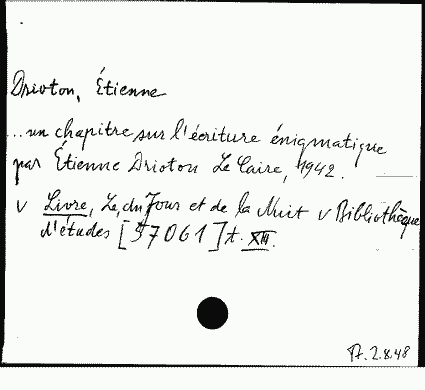 Drioton, Étienne
...un chapitre sur l'écriture énigmatique
par Étienne Drioton Le Caire, 1942.
v Livre, Le, du Jour et de la Nuit v Bibliothèque
d'études [57061] t. XIII.
2.8.48